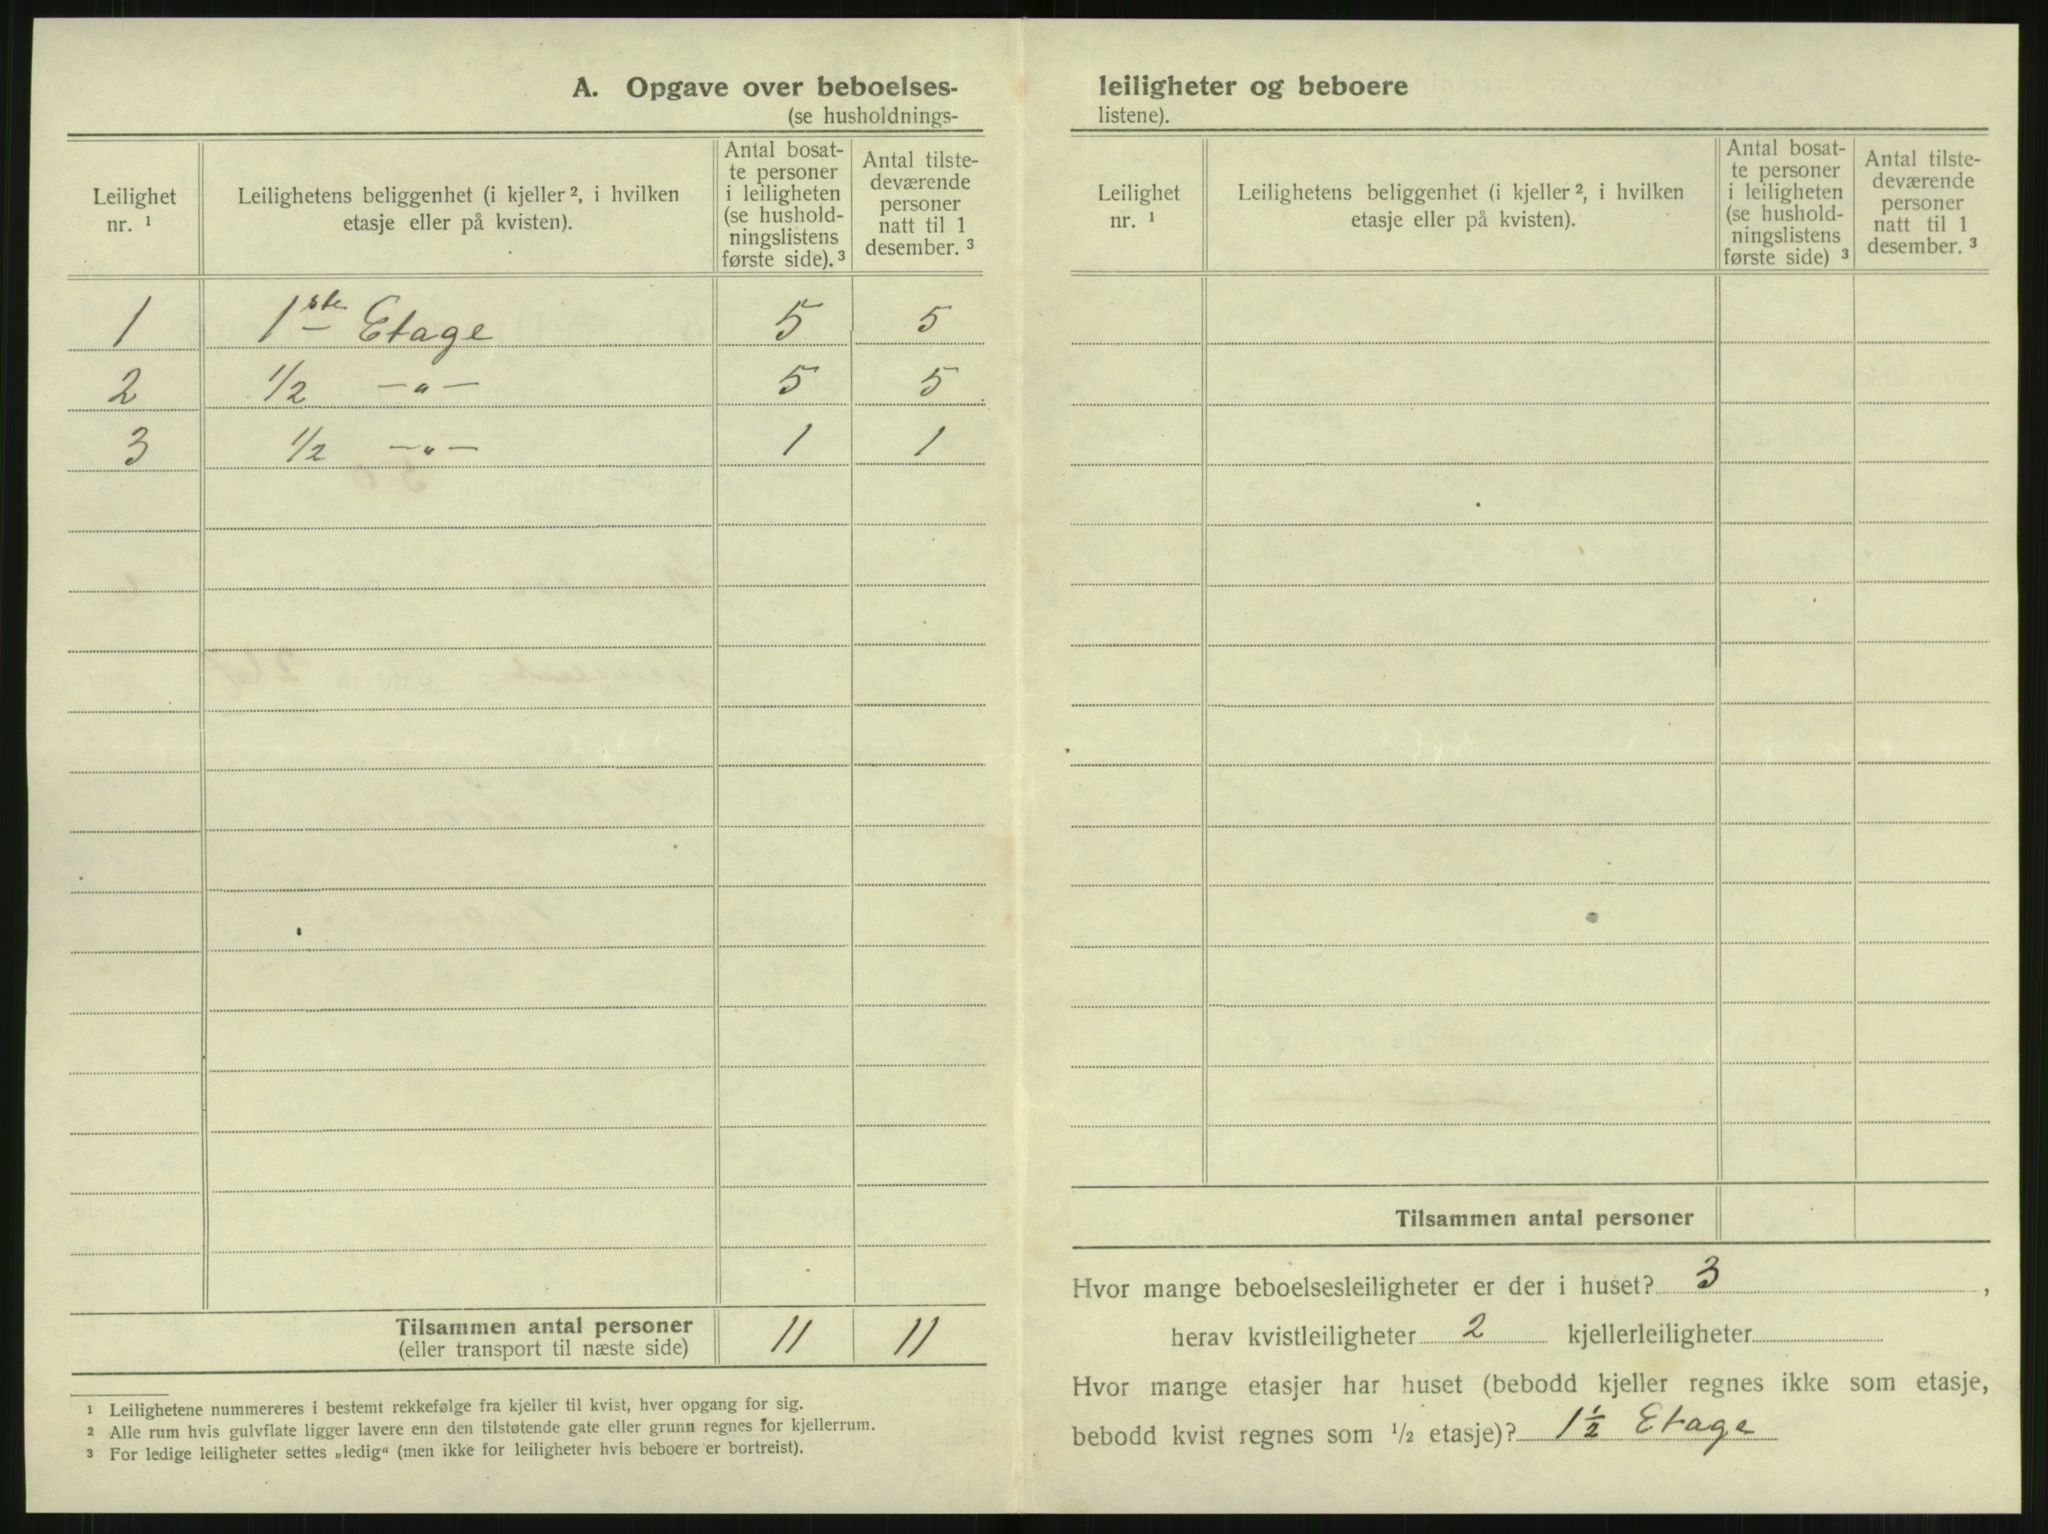 A. Opgave over beboelses-
(se husholdnings-
Leilighet nr. ¹
Leilighetens beliggenhet (i kjeller ², i hvilken etasje eller på kvisten).
Antal bosat-
te personer
i leiligheten
(se hushold-
ningslistens
første side). ³
Antal tilste-
deværende
personer
natt til 1
desember. ³
1 1ste Etage 5 5
2 1/2 —„— 5 5
3 1/2 —„— 1 1
Tilsammen antal personer 11 11
(eller transport til næste side)
¹ Leilighetene nummereres i bestemt rekkefølge fra kjeller til kvist, hver opgang for sig.
² Alle rum hvis gulvflate ligger lavere enn den tilstøtende gate eller grunn regnes for kjellerrum.
³ For ledige leiligheter settes „ledig“ (men ikke for leiligheter hvis beboere er bortreist).
leiligheter og beboere
listene).
Leilighet nr. ¹
Leilighetens beliggenhet (i kjeller ², i hvilken etasje eller på kvisten).
Antal bosat-
te personer
i leiligheten
(se hushold-
ningslistens
første side) ³
Antal tilste-
deværende
personer
natt til 1
desember. ³
Tilsammen antal personer
Hvor mange beboelsesleiligheter er der i huset? 3 ,
herav kvistleiligheter 2 kjellerleiligheter
Hvor mange etasjer har huset (bebodd kjeller regnes ikke som etasje,
bebodd kvist regnes som 1/2 etasje)? 1 1/2 Etage